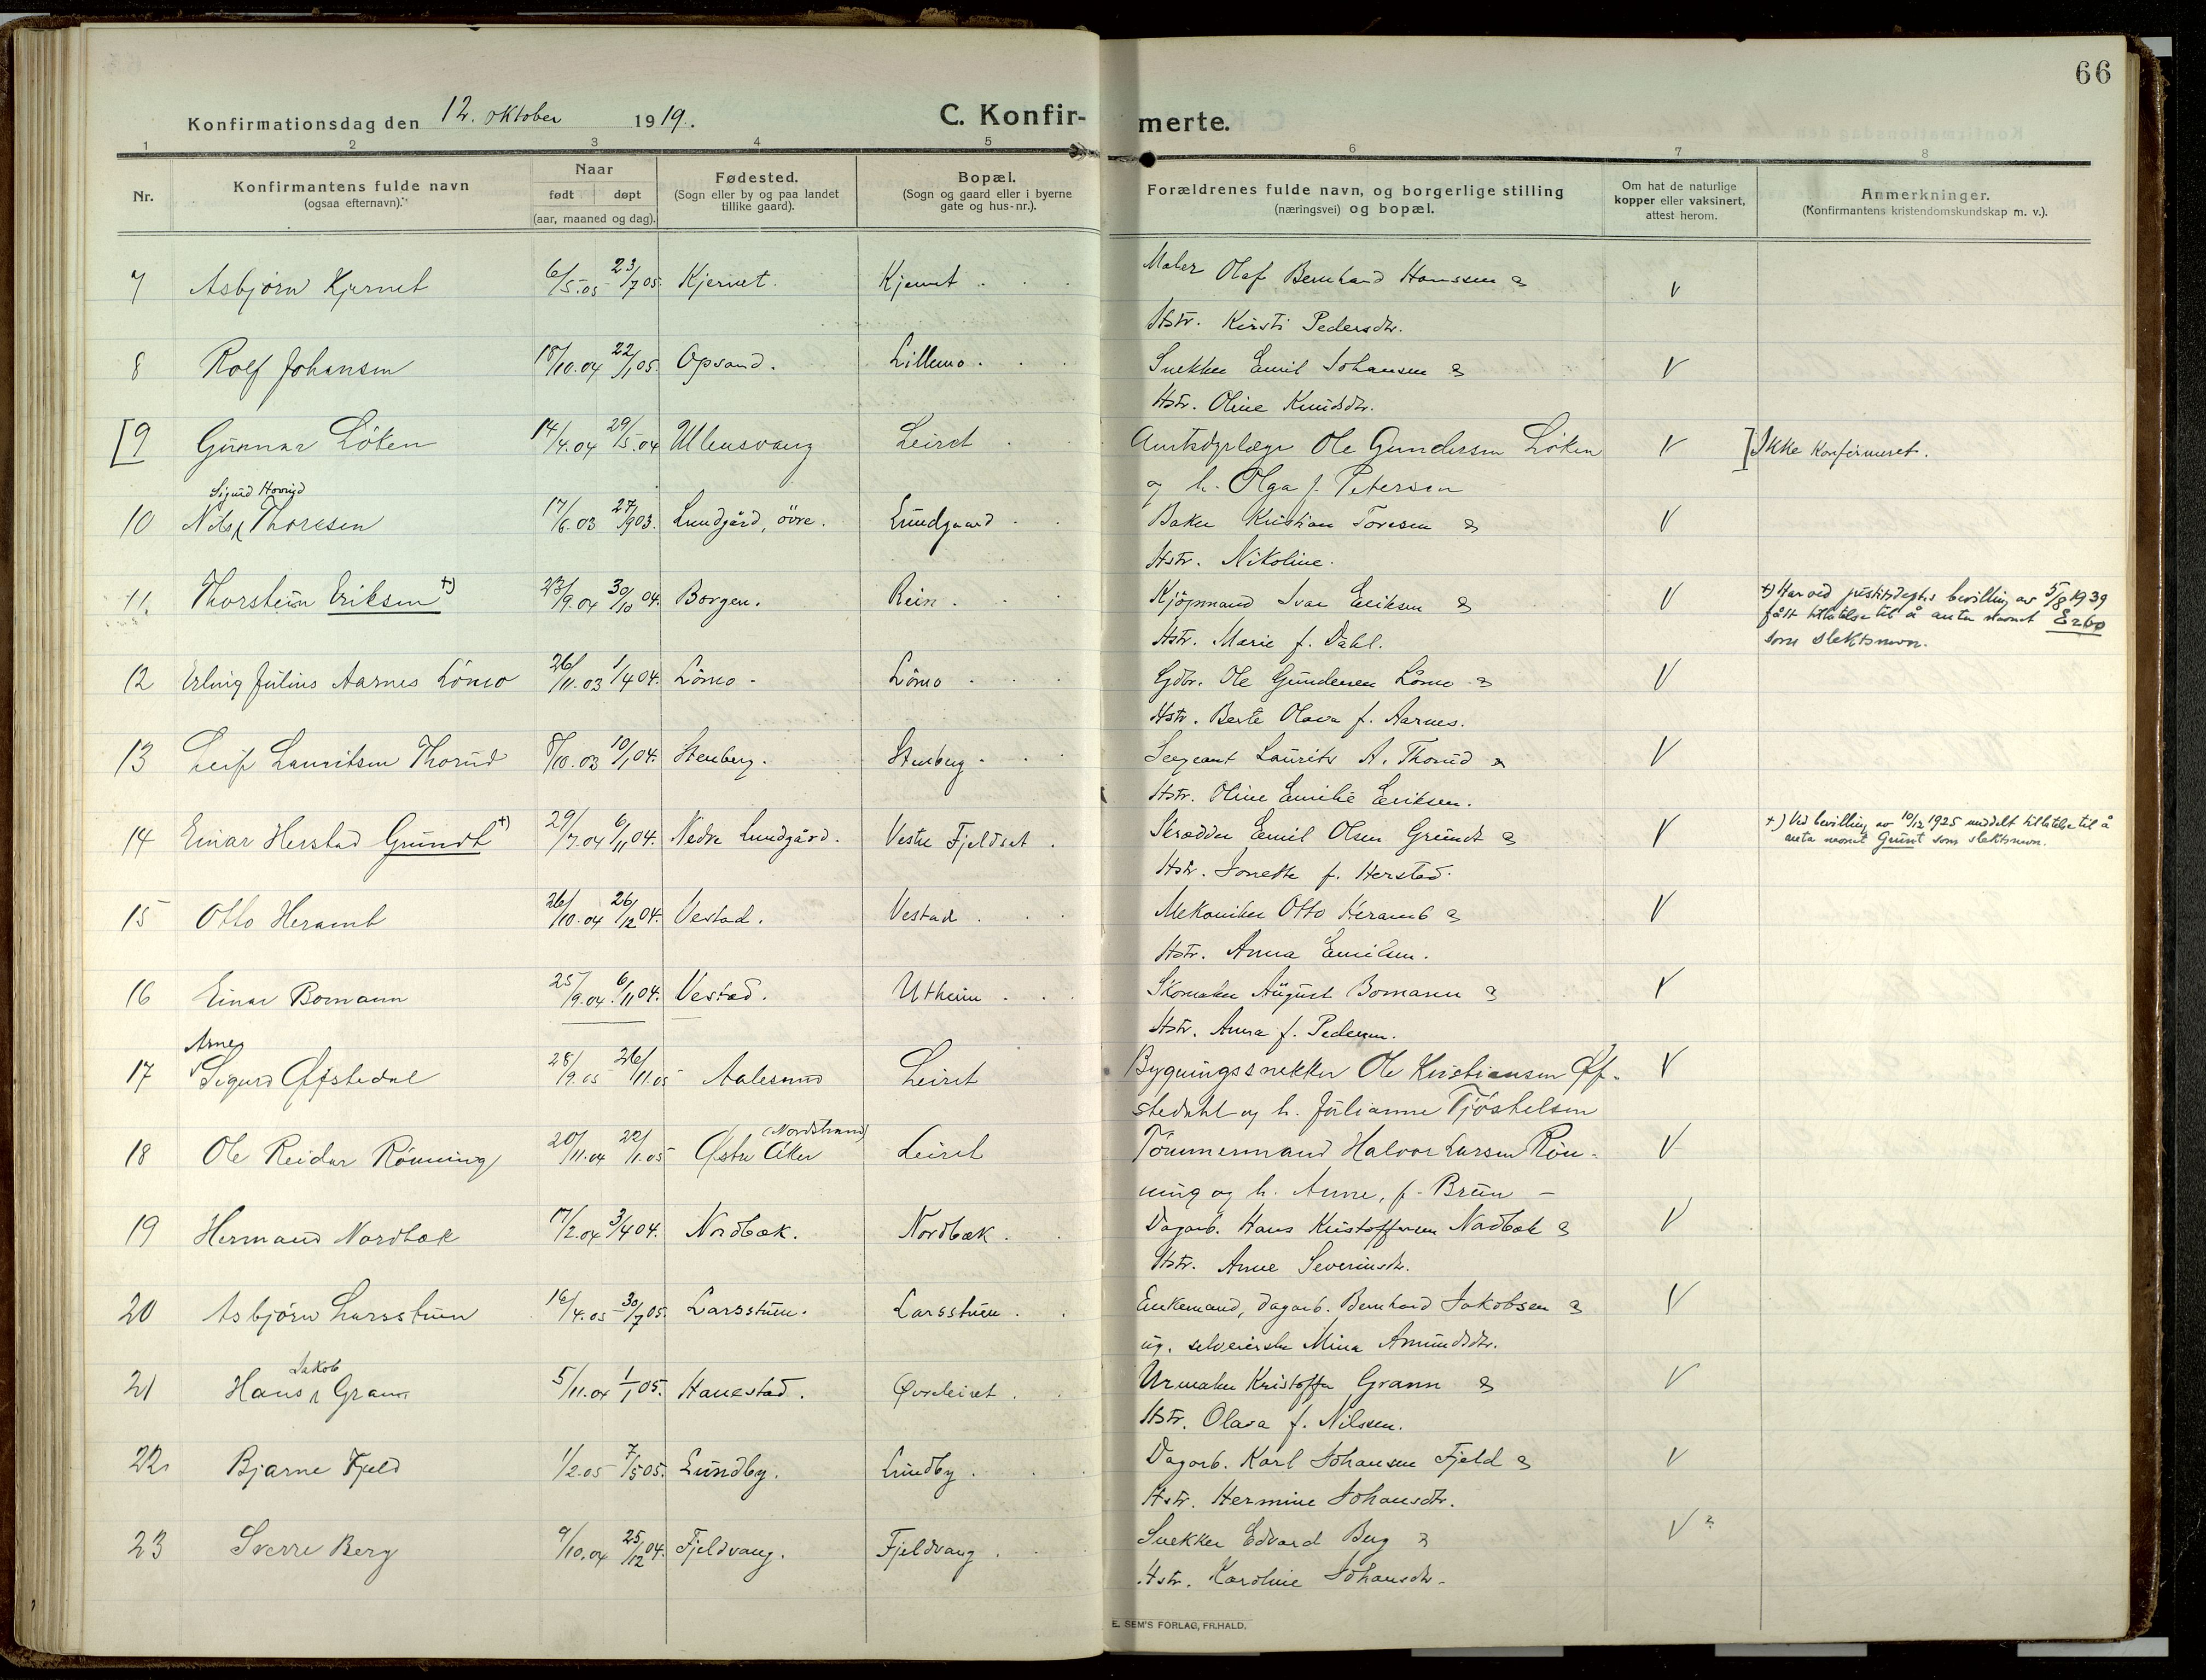 66
Konfirmationsdag den 12. oktober 1919.
C. Konfir-merte.
1 2 3 4 5 6 7 8
Nr.
Konfirmantens fulde navn
(ogsaa efternavn).
Naar
født døpt
(aar, maaned og dag).
Fødested.
(Sogn eller by og paa landet
tillike gaard).
Bopæl.
(Sogn og gaard eller i byerne
gate og hus-nr.).
Forældrenes fulde navn, og borgerlige stilling
(næringsvei) og bopæl.
Om hat de naturlige
kopper eller vaksinert,
attest herom.
Anmerkninger.
(Konfirmantens kristendomskundskap m. v.).
7 Asbjørn Kjernet 6/5.05 23/7 05. Kjernet. Kjernet . Maler Olaf Bernhard Hanssen & V
Hstr. Kirsti Pedersdtr.
8 Rolf Johansen 18/10.04 22/1 05. Opsand. Lillemo . Snekker Emil Johansen & V
Hstr. Oline Knudsdtr.
[9 Gunnar Löken 14/4.04 29/5.04 Ullensvang Leiret . Amtsdyrlæge Ole Gundersen Löken V ]Ikke konfirmeret.
og h. Olga f. Petersen
Sigurd Hovind
10 Nils Thoresen 17/6.03 27/9 03. Lundgård, övre. Lundgaard . Baker Kristian Toresen & V
Hstr. Nikoline.
11. Thorstein Eriksen +) 23/9.04 30/10 04. Borgen. Rein . Kjöpmand Ivar Eriksen & V +) Har ved justitsdepts bevilling av 5/8 1939
fått tillatelse til å anta navnet Erbo
Hstr. Marie f. Dahl. som slektsnavn.
12 Erling Julius Aarnes Lömo 26/11.03 1/4 04. Lömo . Lömo . Gdbr. Ole Gundersen Lömo & V
Hstr. Berte Olava f. Aarnes.
13 Leif Lauritsen Thorud 8/10.03 10/1 04. Stenberg. Stenberg . Sergeant Laurits A. Thorud & V
Hstr. Oline Emilie Eriksen.
14 Einar Herstad Grundt +) 29/7.04 6/11 04. Nedre Lundgård. Vestre Fjeldset . Skrædder Emil Olsen Grundt & V +) Ved bevilling av 10/12 1925 meddelt tillatelse til å
anta navnet Grunt som slektsnavn.
Hstr. Jonette f. Herstad.
15 Otto Heramb 26/10.04 26/12 04. Vestad. Vestad . Mekaniker Otto Heramb & V
Hstr. Anna Emilsen.
16 Einar Bomann 25/9.04. 6/11 04. Vestad. Utheim . Skomaker August Bomann & V
Hstr. Anna f. Pedersen.
Arne
17 Sigurd Øfstedal 28/9.05 26/11.05 Aalesund Leiret Bygningssnekker Ole Kristiansen Øf- V
stedahl og h. Julianne Tjöstelsen
(Nordstrand)
18 Ole Reidar Rönning 20/11.04 22/1.05 Østre Aker Leiret Tömmermand Halvor Larsen Rön- V
ning og h. Anne, f. Brun –
19 Hermand Nordbæk 17/2.04 3/4 04. Nordbæk. Nordbæk . Dagarb. Hans Kristoffersen Nordbæk & V
Hstr. Anne Severinsdtr.
20 Asbjörn Larsstuen 16/4.05 30/7 05. Larsstuen. Larsstuen . Enkemand, dagarb. Bernhard Jakobsen & V
ug. selveierske Mina Amundsdtr.
Jakob
21 Hans Gran 5/11.04 1/1 05. Hanestad. Øvreleiret . Urmaker Kristoffer Grann & V
Hstr. Olava f. Nilssen.
22 Bjarne Fjeld 1/2.05 7/5 05. Lundby. Lundby . Dagarb. Karl Johansen Fjeld & V
Hstr. Hermine Johansdtr.
23 Sverre Berg 9/10.04 25/12 04. Fjeldvang. Fjeldvang . Snekker Edvard Berg & V ?
Hstr. Karoline Johansdtr.
E. SEM'S FORLAG, FR.HALD.